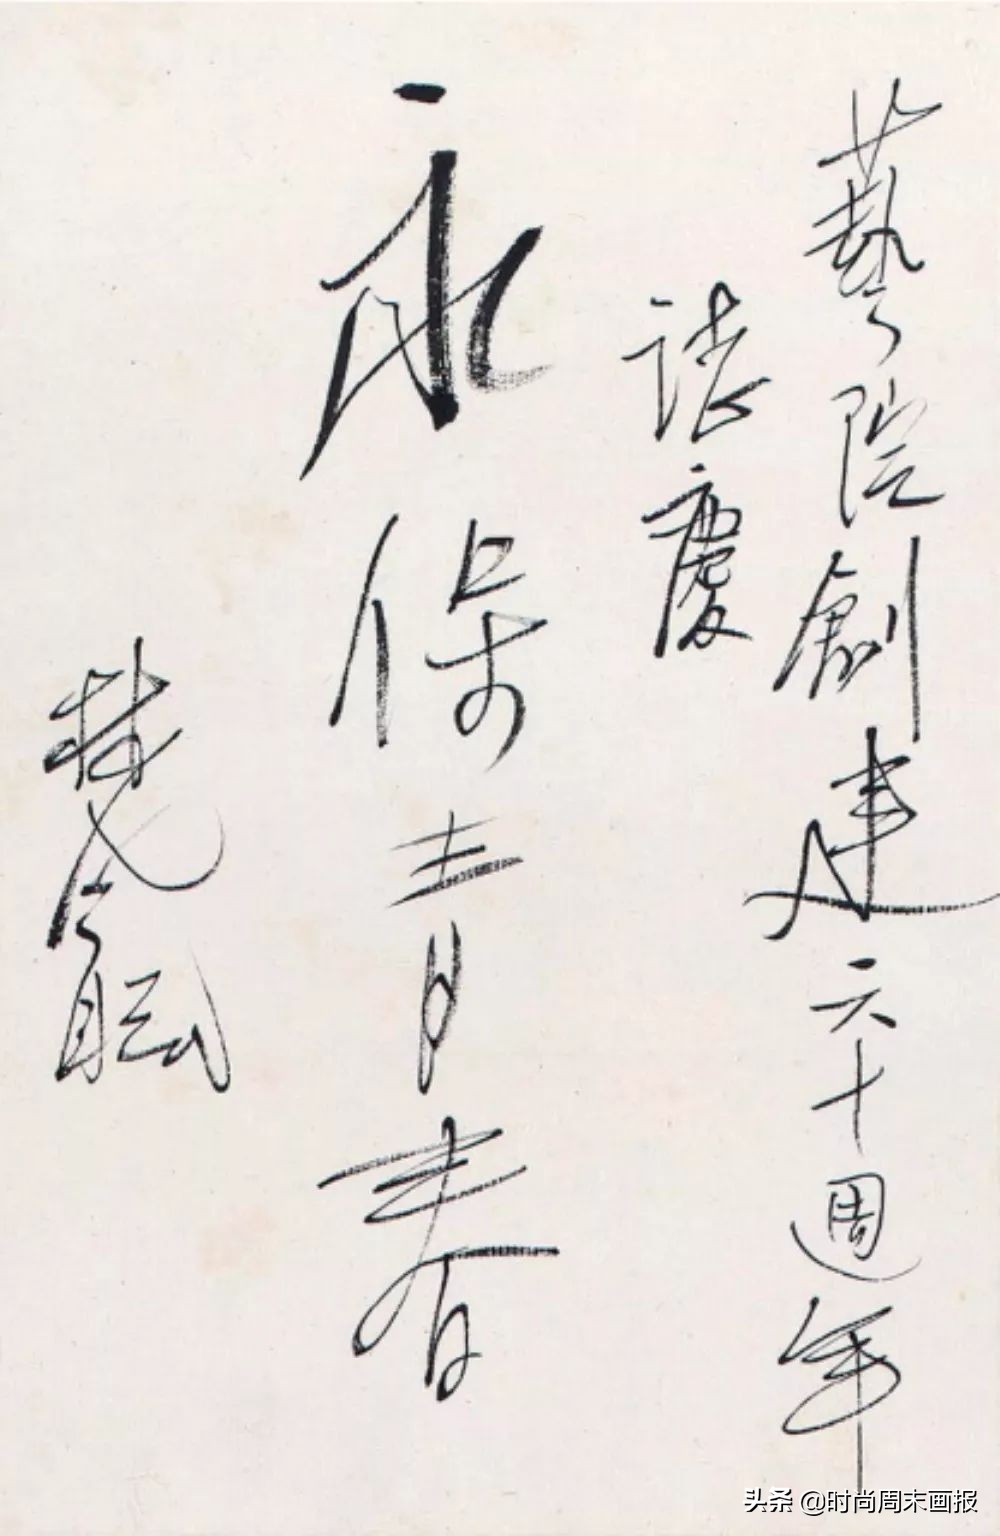 藝院創建六十週年
誌慶
永保青春
林風眠
头条 @时尚周末画报